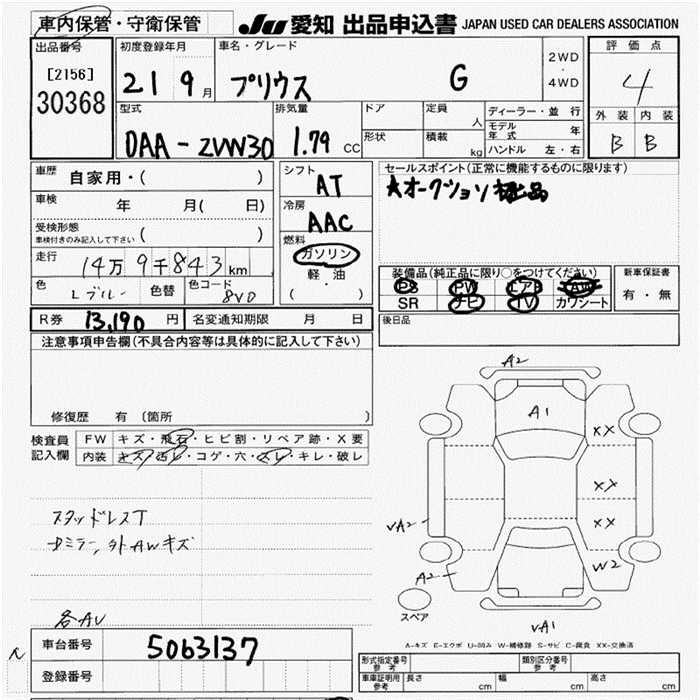 車内保管・守衛保管 JU 愛知 出品申込書 JAPAN USED CAR DEALERS ASSOCIATION
出品番号 [2156] 30368
初度登録年月 21 9月
車名・グレード プリウス G
2WD・4WD
評価点 4
外装 B 内装 B
型式 DAA-ZVW30
排気量 1.79 CC
ドア 定員 人
形状 積載 kg
ディーラー・並行
モデル年式 年
ハンドル 左・右
車歴 自家用・( )
車検 年 月( 日)
受検形態 車検付きのみ記入して下さい ( )
走行 14万9千843km
色 Lブルー 色替 色コード 8V0
シフト AT
冷房 AAC
燃料 ガソリン 軽・油 ( ・ )
セールスポイント(正常に機能するものに限ります)
★オークション
装備品(純正品に限り○をつけてください)
PS PW エアB AW
SR ナビ TV カワシート
新車保証書 有・無
R券 13,190円 名変通知期限 月 日
後日品
注意事項申告欄(不具合内容等は具体的に記入して下さい)
修復歴 有 〔箇所 〕
検査員記入欄
FW キズ・飛石・ヒビ割・リペア跡・X要
内装 キズ・汚レ・コゲ・穴・スレ・キレ・破レ
スタッドレスT
ミラー,外AWキズ
各AU
A2
A1
XX
XX
XX
VA2
A2
W2
スペア
VA1
A-キズ E-エクボ U-凹み W-補修跡 S-サビ C-腐食 XX-交換済
車台番号 5063137
登録番号
形式指定番号 参考 類別区分番号 参考
車庫証明用 参考 長さ cm 幅 cm 高さ cm